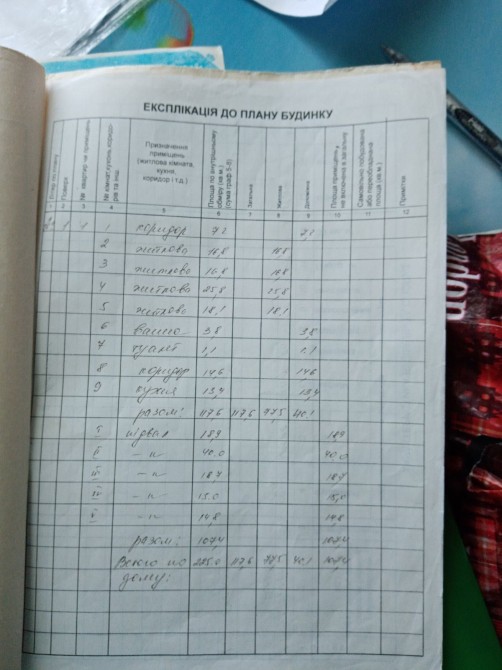 ЕКСПЛІКАЦІЯ ДО ПЛАНУ БУДИНКУ
Поверх
№ квартир чи приміщень
№ кімнат, кухонь, коридорів та інш.
Призначення приміщень (житлова кімната, кухня, коридор і т.д.)
Площа по внутрішньому обміру (кв.м.) (сума граф 5-8)
Загальна
Житлова
Допоміжна
Площа приміщень, не включена в загальну
Самовільно побудована або переобладнана площа (кв.м.)
Примітки
1 2 3 4 5 6 7 8 9 10 11 12
1 1 1 коридор 7,2 7,2
2 житлова 16,8 16,8
3 житлова 16,8 16,8
4 житлова 25,8 25,8
5 житлова 18,1 18,1
6 ванна 3,8 3,8
7 туалет 1,1 1,1
8 коридор 14,6 14,6
9 кухня 13,4 13,4
разом: 117,6 117,6 77,5 40,1
І підвал 18,9 18,9
ІІ - " - 40,0 40,0
ІІІ - " - 18,7 18,7
ІV - " - 15,0 15,0
V - " - 14,8 14,8
разом: 107,4 107,4
Всього по дому: 225,0 117,6 77,5 40,1 107,4